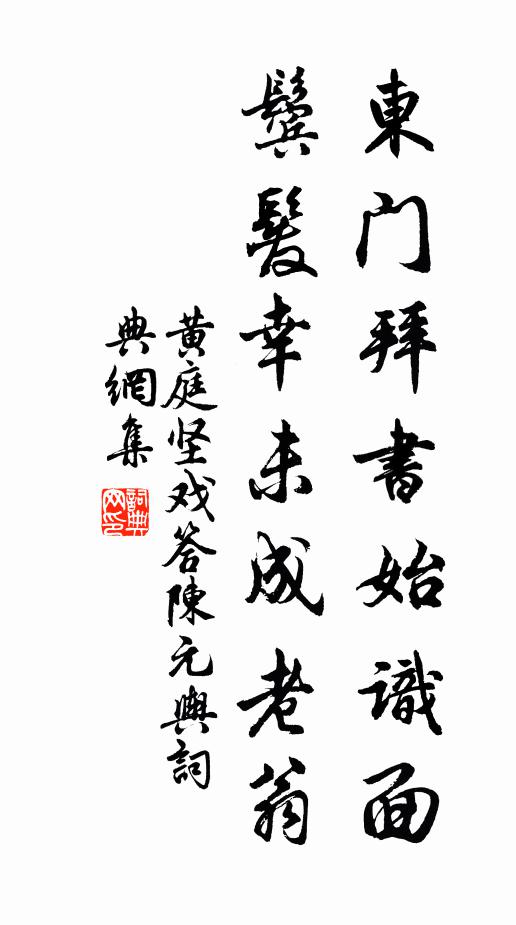 東門拜書始識面
鬢髮幸未成老翁
黄庭坚戏答陳元輿詞
典網集
詞典网印